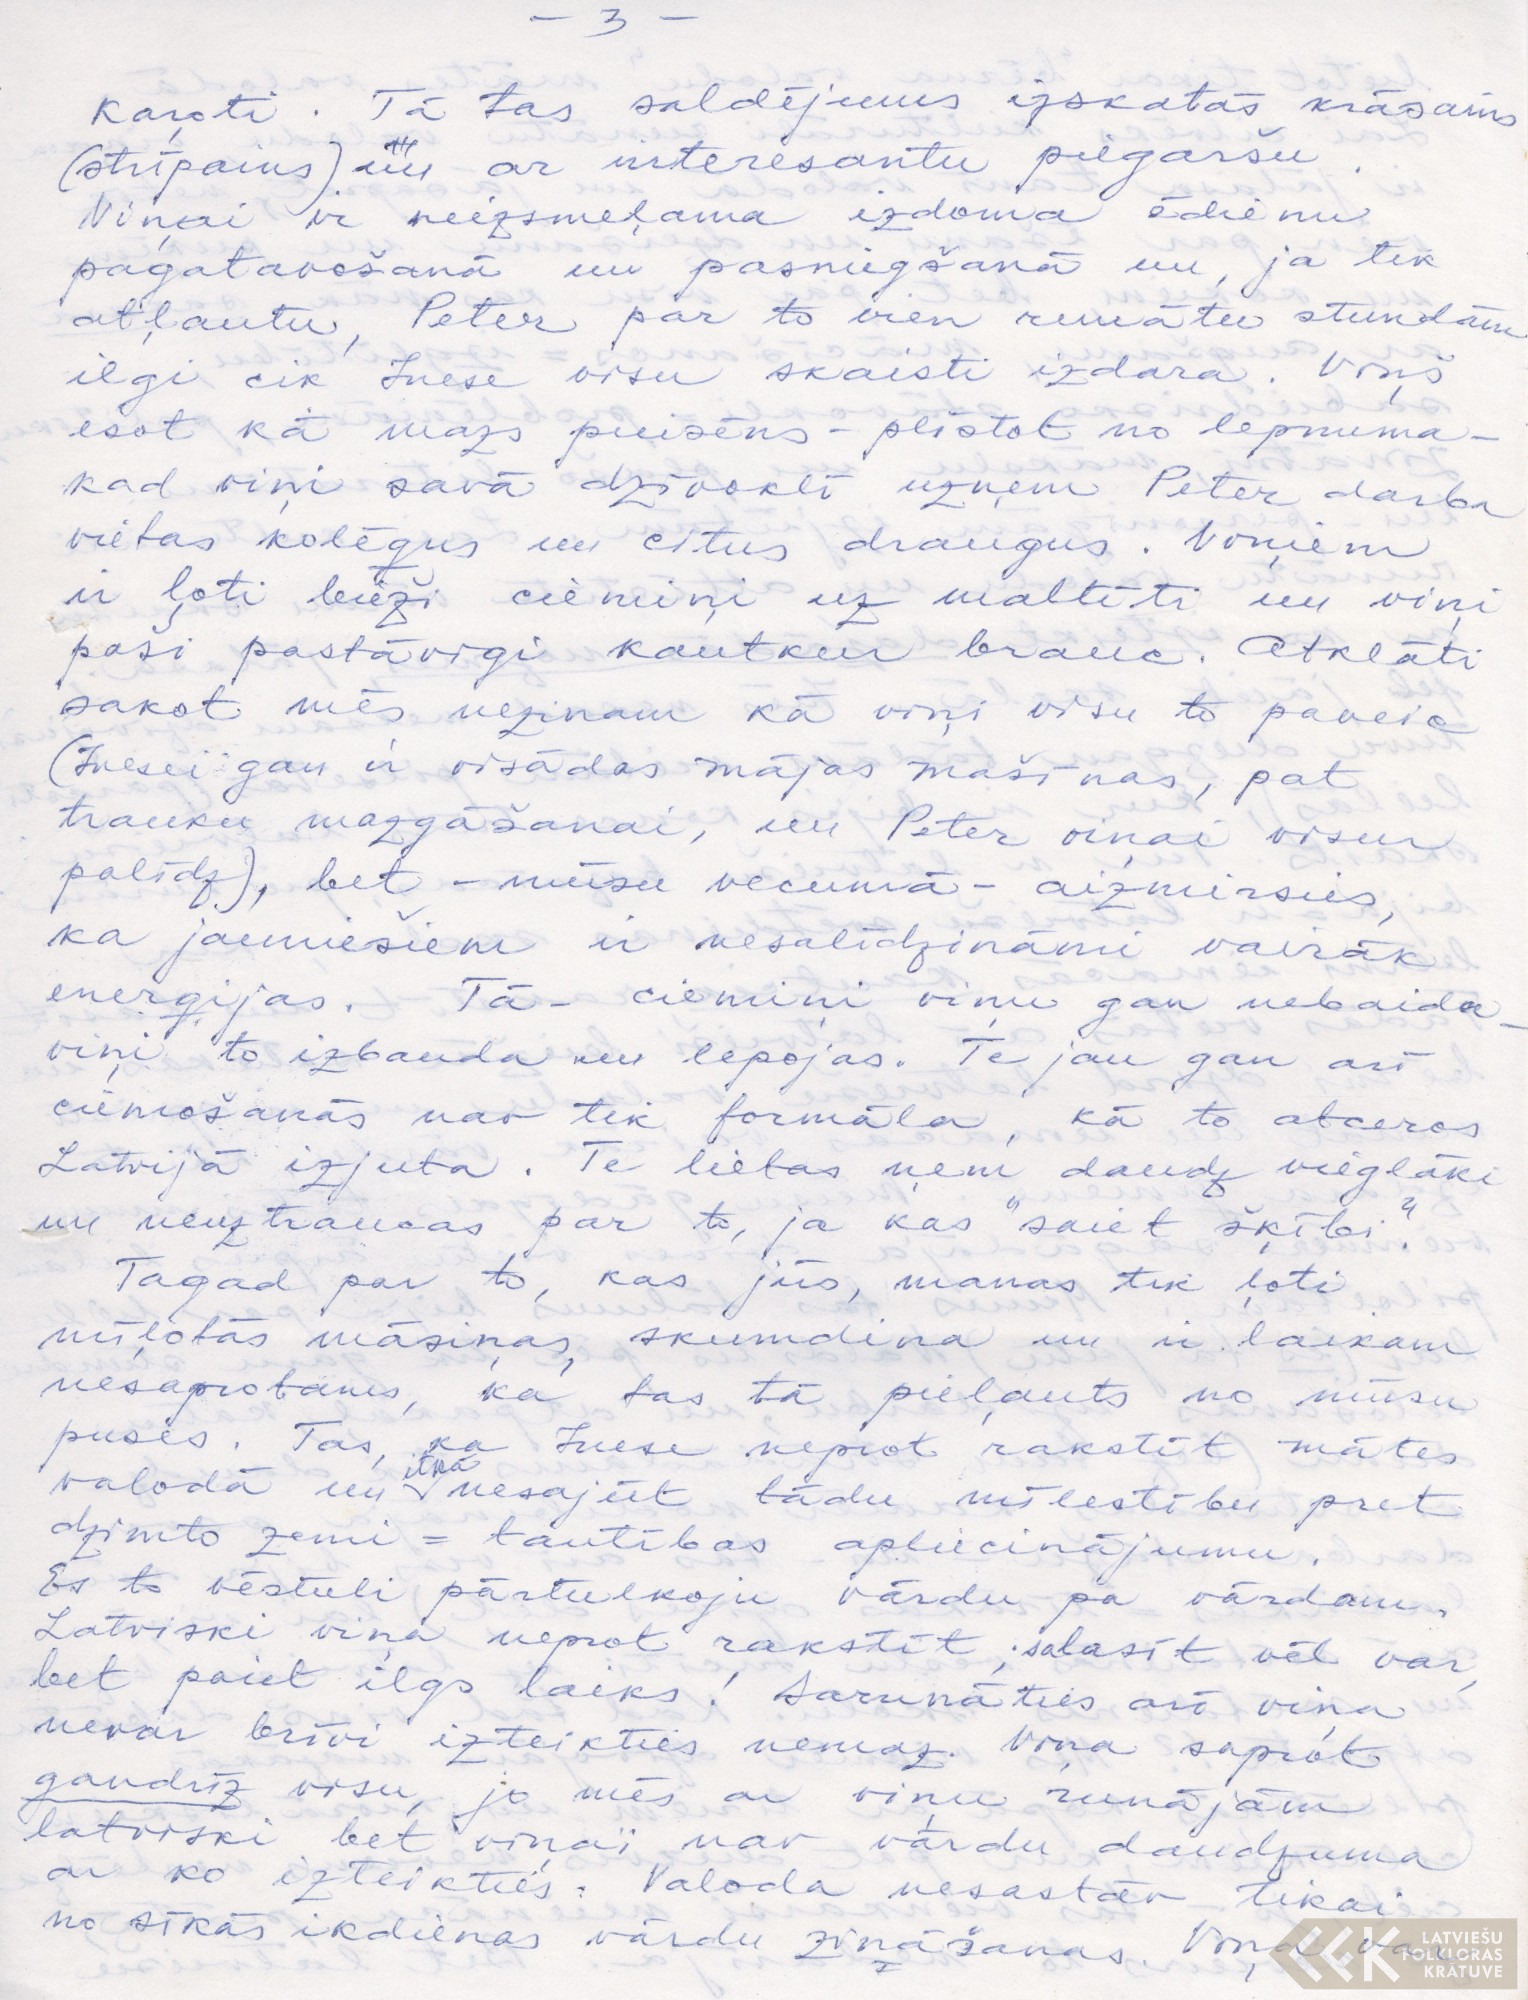 - 3 -
karoti. Tā tas saldējums izskatās krāsains
(strīpains) un ar interesantu piegaršu.
Viņai ir neizsmeļama izdoma ēdienu
pagatavošanā un pasniegšanā un, ja tik
atļautu, Peter par to vien runātu stundām
ilgi cik Inese visu skaisti izdara. Viņš
esot kā mazs puisēns - plīstot no lepnuma -
kad viņi savā dzīvoklī uzņem Peter darba
vietas kolēģus un citus draugus. Viņiem
ir ļoti bieži ciemiņi uz maltīti un viņi
paši pastāvīgi kautkur brauc. Atklāti
sakot mēs nezinam kā viņi visu to paveic
(Inesei gan ir visādas mājas mašīnas, pat
trauku mazgāšanai, un Peter viņai visur
palīdz), bet - mūsu vecumā - aizmirsies,
ka jauniešiem ir nesalīdzināmi vairāk
enerģijas. Tā - ciemiņi viņu gan nebaida -
viņi to izbauda un lepojas. Te jau gan arī
ciemošanās nav tik formāla, kā to atceros
Latvijā izjuta. Te lietas ņem daudz vieglāki
un neuztraucas par to, ja kas "saiet šķībi".
Tagad par to, kas jūs, manas tik ļoti
mīļotās māsiņas, skumdina un ir laikam
nesaprotams, ka tas tā pieļauts no mūsu
puses. Tas, ka Inese neprot rakstīt mātes
valodā un itkā nesajūt tādu mīlestību pret
dzimto zemi = tautības apliecinājumu.
Es to vēstuli pārtulkoju vārdu pa vārdam.
Latviski viņa neprot rakstīt, salasīt vēl var,
bet paiet ilgs laiks! Sarunāties arī viņa
nevar brīvi izteikties nemaz. Viņa saprot
gandrīz visu, jo mēs ar viņu runājām
latviski bet viņai nav vārdu daudzuma
ar ko izteikties. Valoda nesastāv tikai
no sīkās ikdienas vārdu zināšanas. Viņa var
LATVIEŠU
FOLKLORAS
KRĀTUVE